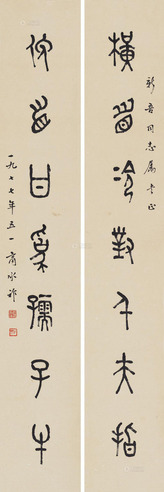 新吾同志属书正
横眉冷对千夫指
俯首甘为孺子牛
一九七七年五一商承祚